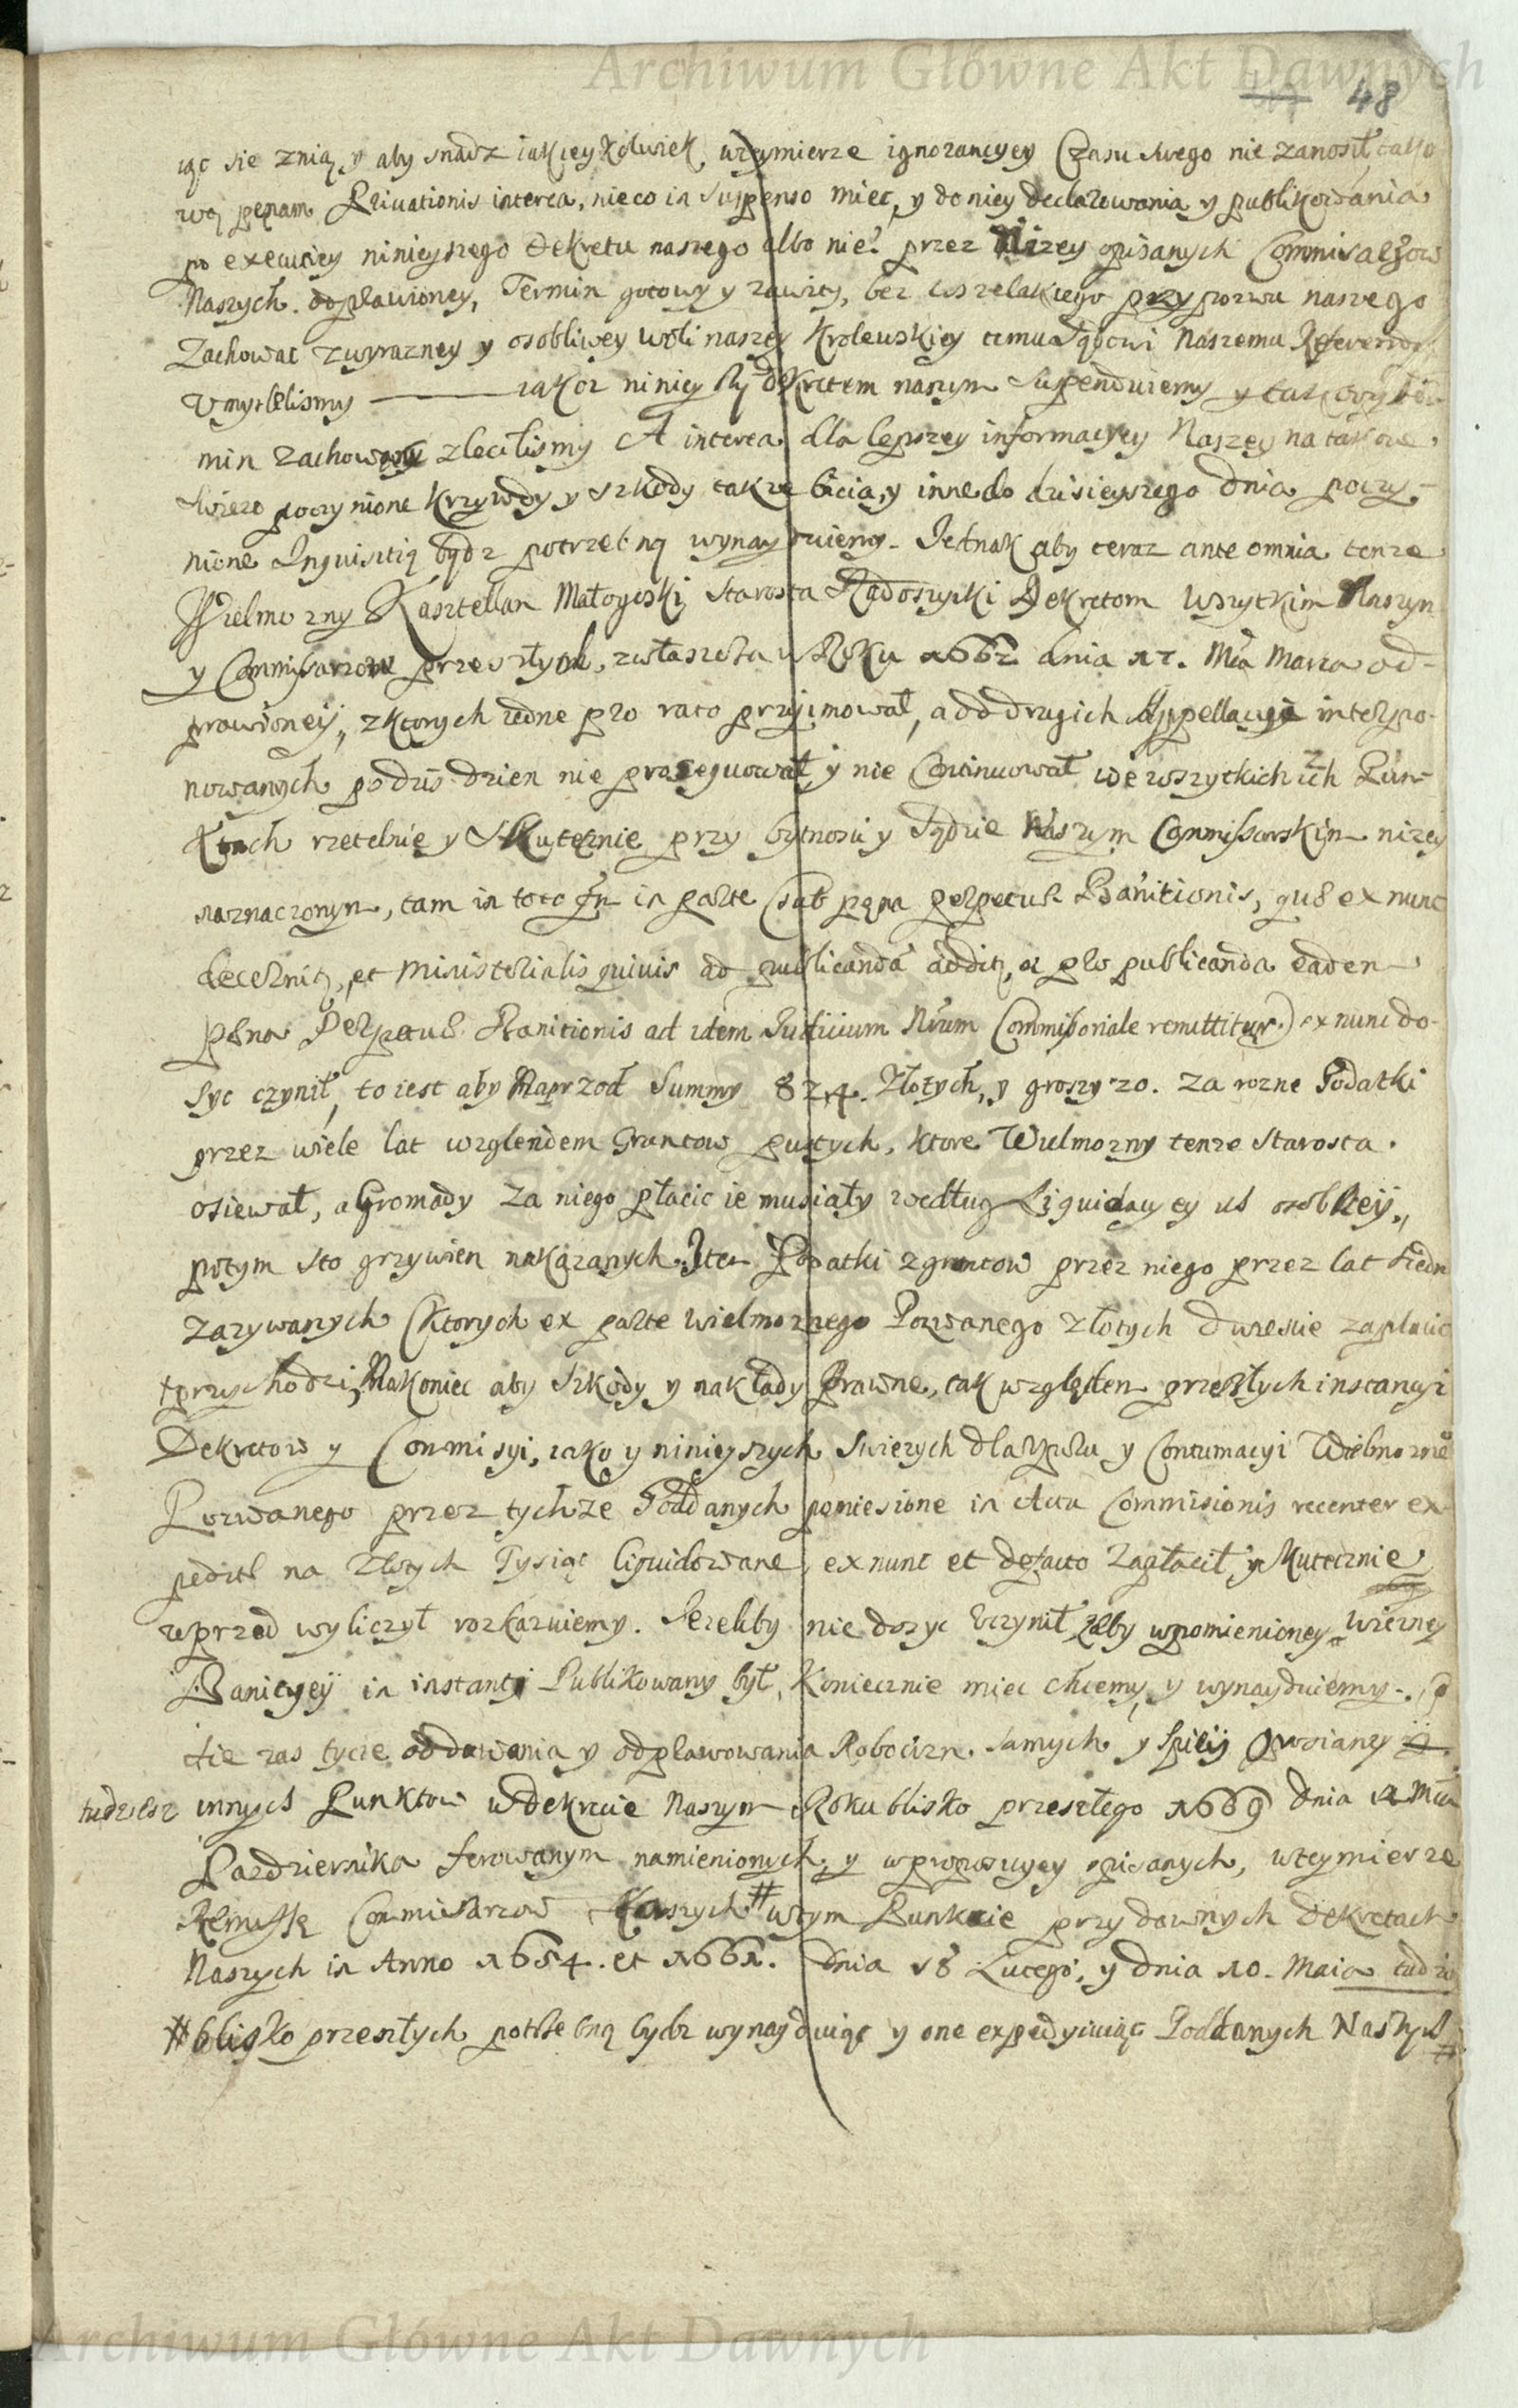 Archiwum Główne Akt Dawnych
48
iąc sie znią, y aby snadz iakieykolwiek wteymierze ignorancyey Czasu swego nie zanosił, tako
wą pęnam Priuationis interea, nieco in suspenso miec, y do niey declarowania y publikowania
po execuciey ninieyszego Dekretu naszego albo nie? przez Nizey opisanych Commissarzow
Naszych odprawioney, Termin gotowy y zawity, bez wszelakiego przypozwu naszego
Zachowac zwyrazney y osobliwey woli naszey Krolewskiey temu Sądowi Naszemu Referendar
Vmyslelismy ——— iakoz ninieyszy dekretem naszym suspenduiemy y takowy ter
min zachowany zlecilismy A interea dla lepszey informacyey Naszey na takowe
swiezo poczynione krzywdy y szkody takze bicia, y inne do dzisieyszego dnia poczy-
nione Inquisitią bydz potrzebną wynayduiemy. Jednak aby teraz ante omnia tenze
Wielmozny Kasztellan Małogoski Starosta Radoszycki Dekretom Wszytkim Naszym
y Commissarzow przeszłych, zwłaszcza w Roku 1662 dnia 17. Mca Marca od-
prawioneij, zktorych iedne pro rato przyimował, a od drugich Appellacyi interpo-
nowanych podzis dzien nie prosequował, y nie Continuował we wszytkich ich Pun-
ktach rzetelnie y skutecznie przy bytnosci y Sądzie Naszym Commissarskim nizey
naznaczonym, tam in toto qn in parte (sub pęna perpetuæ Banitionis, quæ ex nunc
decernit, et ministerialis quiuis ad publicanda addit, et pro publicanda eadem
pæna Perpetuæ Banitionis ad idem Judicium Nrum Commissoriale remittitur) ex nunc do-
syc czynił, to iest aby Naprzod Summy 824. Złotych, y groszy 20. za rozne Podatki
przez wiele lat wzglendem Gruntow pustych, ktore Wielmozny tenze Starosta
osiewał, a Gromady za niego płacic ie musiały według Liquidacyey us osobneij,
potym sto grzywien nakazanych. Item Podatki zgruntow przez niego przez lat siedm
Zazywanych (ktorych ex parte Wielmoznego Pozwanego złotych dwiescie zapłacic
przychodzi, Nakoniec aby szkody y nakłady Prawne, tak względem przeszłych instancyi
Dekretow y Commisyi, iako y ninieyszych swiezych dla Vporu y Contumacyi Wielmozne
Pozwanego przez tychze Poddanych poniesione in Actu Commisionis recenter ex-
peditæ na Złotych Tysiąc liquidowane, ex nunc et defacto Zapłacił, y skutecznie
wprzod wyliczył rozkazuiemy. Jezeliby nie dosyc vczynił, zeby wspomienioney wieczney
Banicyey in instanti Publikowany był, koniecznie miec chcemy, y wynayduiemy.
tie zas tycze oddawania y odprawowania Robocizn samych y
tudziesz innych Punktow w dekrecie Naszym Roku blisko przeszłego 1669 dnia Mca
Pazdziernika ferowanym namienionych, y wpropozycyey opisanych, wteymierze
Remissą Commissarzow Naszych # wtym Punkcie przy dawnych dekretach
Naszych in Anno 1654. et 1661. dnia 18 Lutego, y dnia 10. Maia tudziesz
# blisko przeszłych potrzebną bydz wynayduiąc y one expedyiuiąc Poddanych Naszych #
Archiwum Główne Akt Dawnych